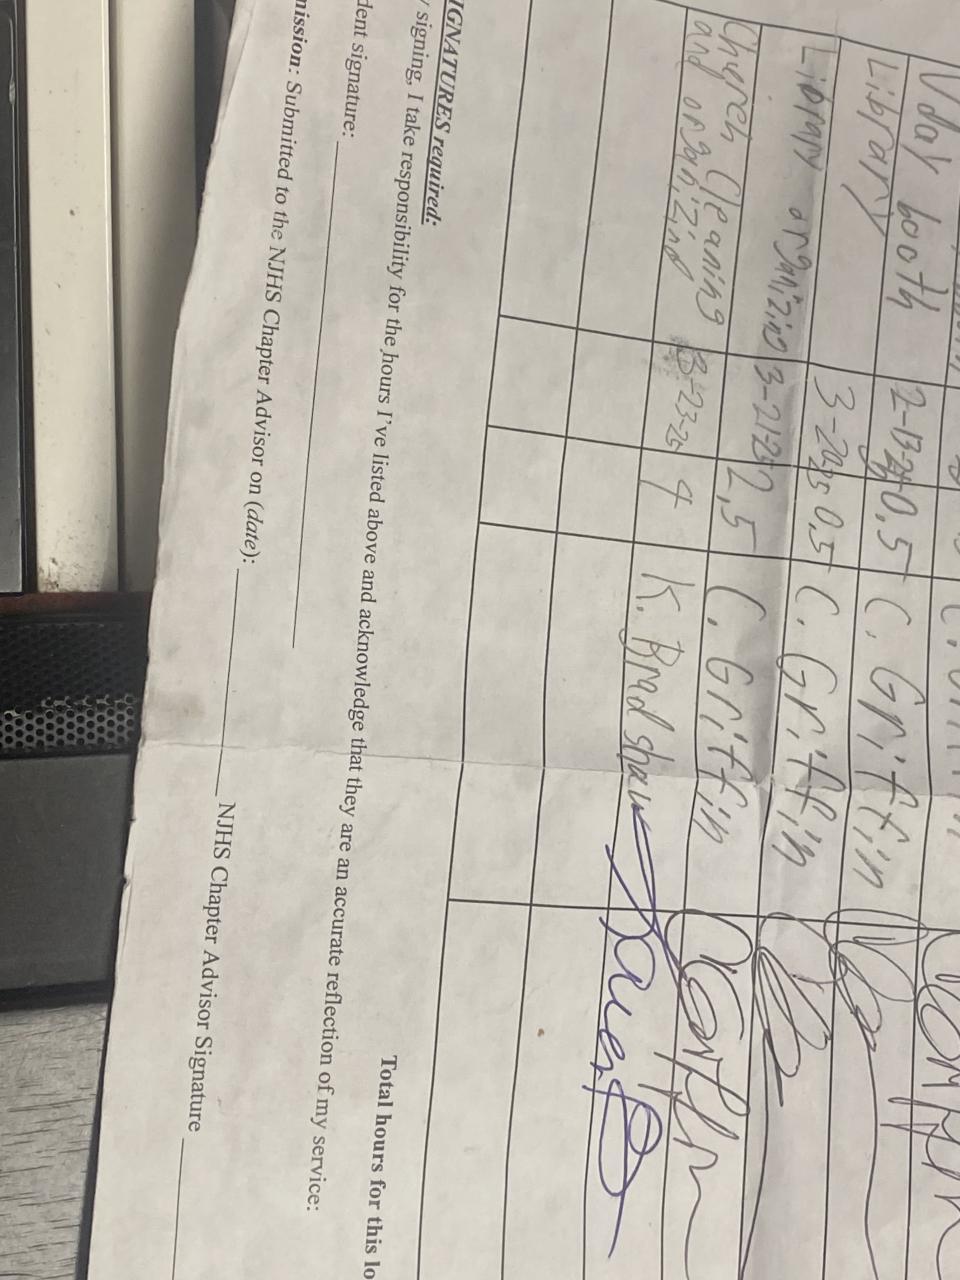 V day booth 2-13-25 0.5 C. Griffin
Library 3-20-25 0.5 C. Griffin
Library organizing 3-21-25 2.5 C. Griffin
Church Cleaning
and organizing 3-23-25 4 K. Bradshaw
Total hours for this lo
IGNATURES required:
y signing, I take responsibility for the hours I've listed above and acknowledge that they are an accurate reflection of my service:
dent signature:
mission: Submitted to the NJHS Chapter Advisor on (date): NJHS Chapter Advisor Signature